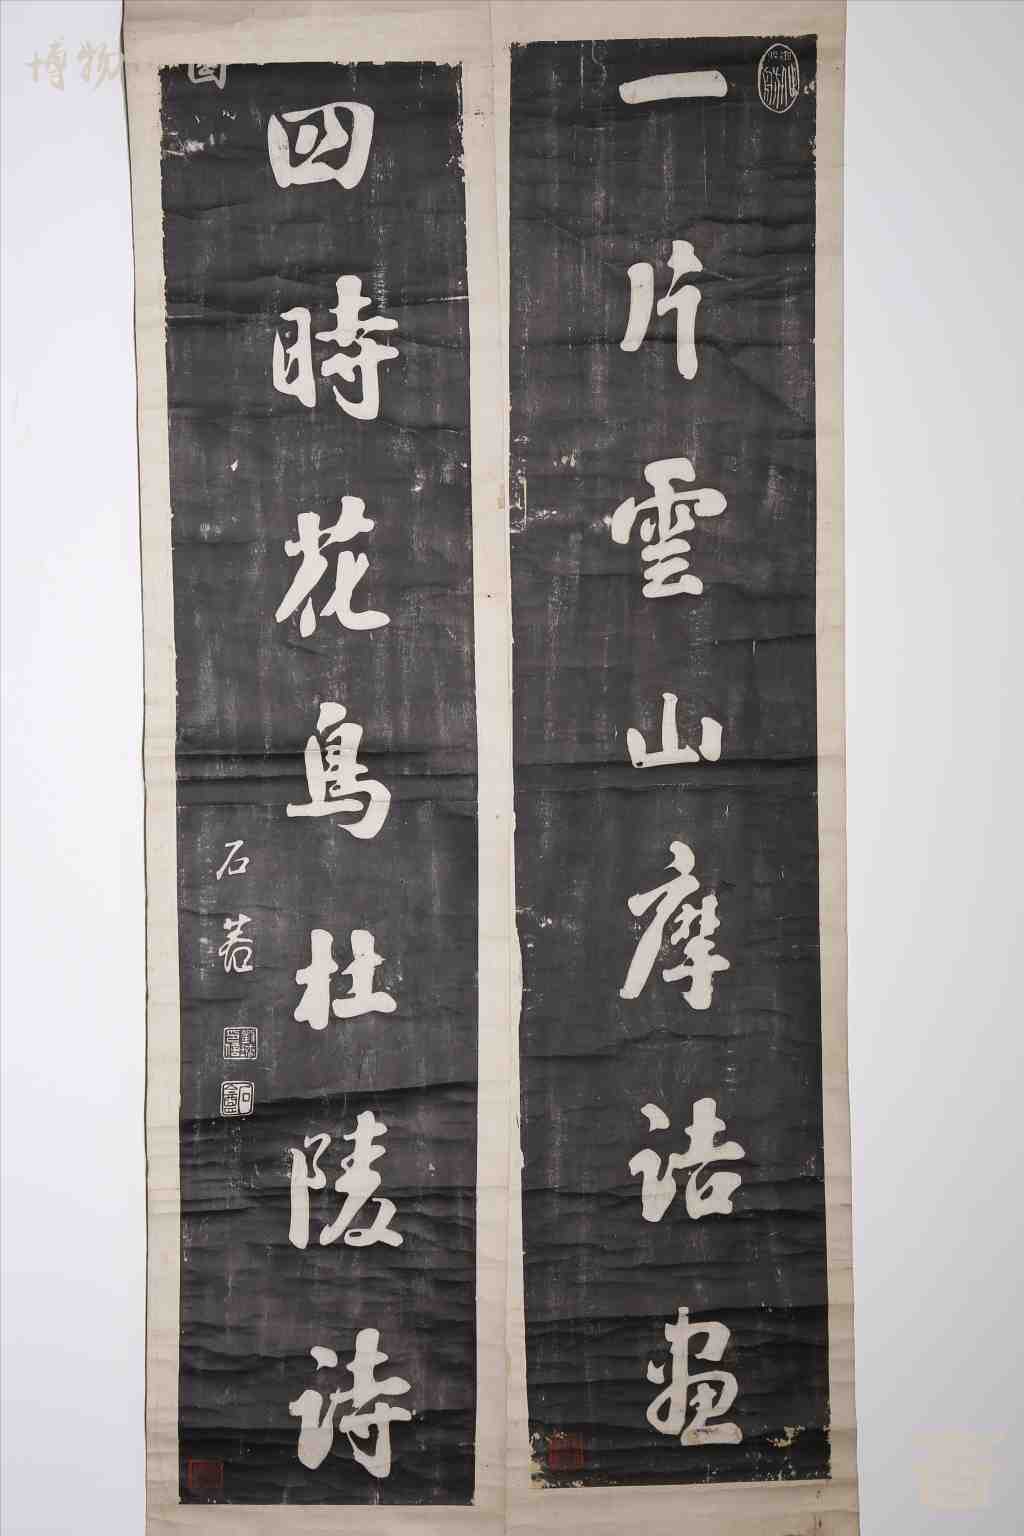 一片雲山摩詰畫
四時花鳥杜陵詩
石菴
博物